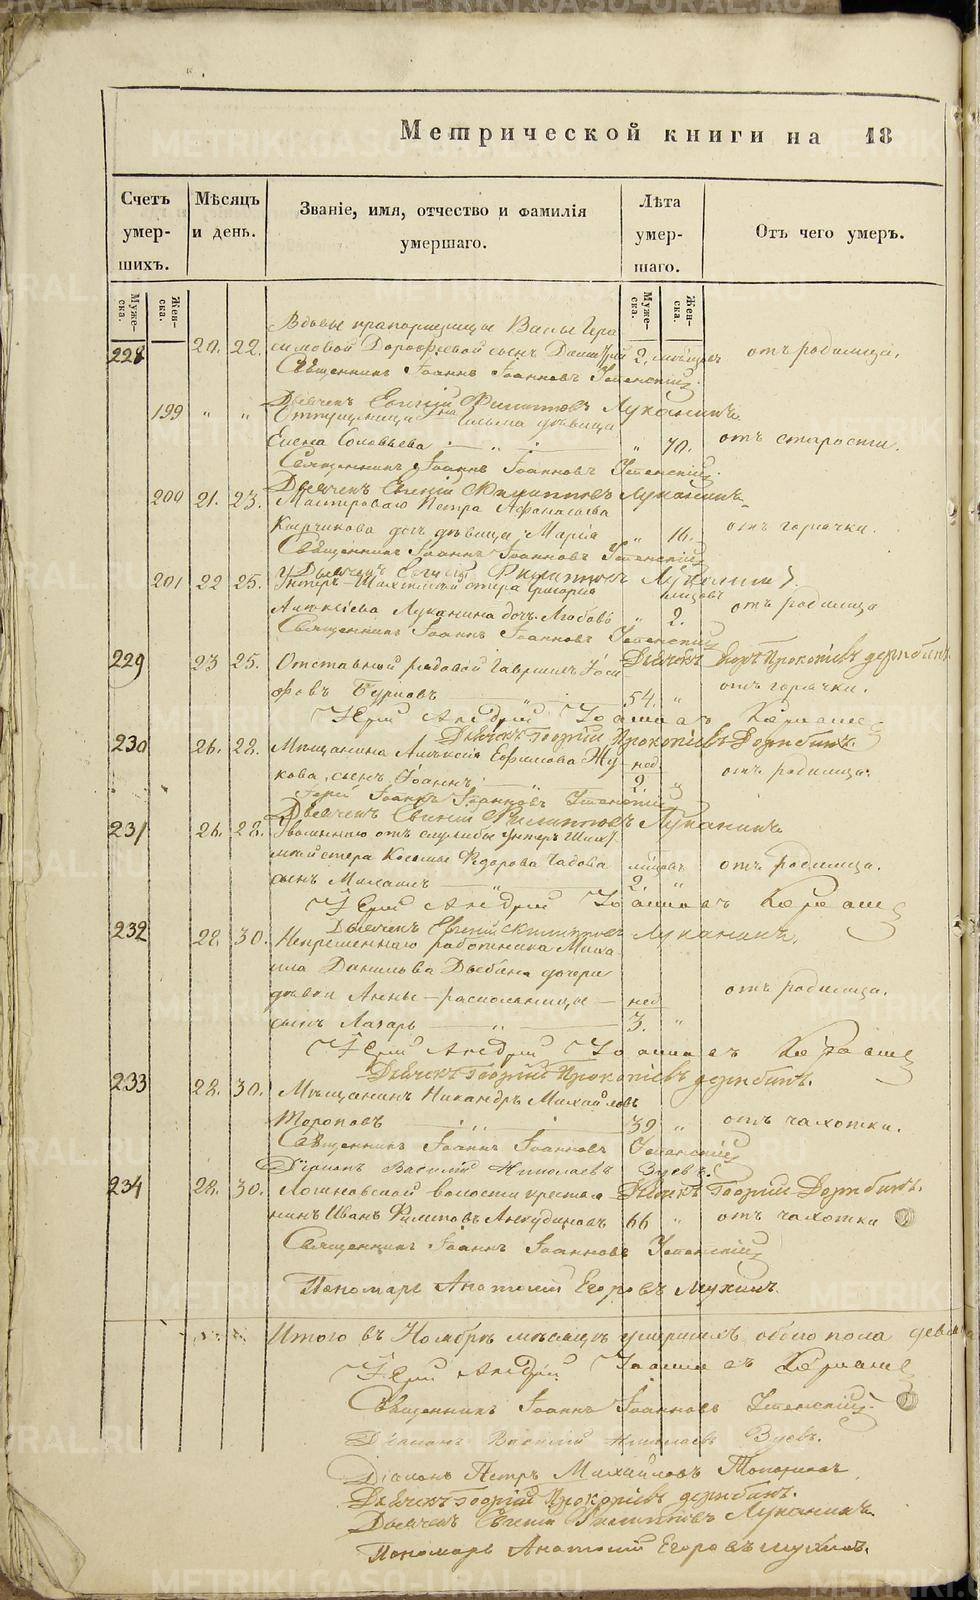 Метрической книги на 18
Счетъ умер- шихъ.
Мѣсяцъ и день.
Званіе, имя, отчество и фамилія умершаго.
Лѣта умер- шаго.
Отъ чего умеръ.
Муже- ска.
Жен- ска.
Муже- ска.
Жен- ска.
Вдовы прапорщицы Вассы Гера
228 20. 22. симовой Дорофѣевой сынъ Дмитрій 2. мѣсяцовъ отъ родимца.
Священникъ Іоаннъ Іоанновъ Успенскій
Дьячекъ Евгеній Филиповъ Луканинъ.
199 " " дѣвица
Елена Соловьева " 70. отъ старости.
Священникъ Іоаннъ Іоанновъ Успенскій.
Дьячекъ Евгеній Филиповъ Луканинъ
200 21. 23. Мастероваго Петра Афанасьева
Кирчикова дочь дѣвица Марія " 16. отъ горячки.
Священникъ Іоаннъ Іоанновъ Успенскій
Дьячекъ Евгеній Филиповъ Луканинъ.
201 22 25. Унтеръ-Шихтмейстера Григорія мѣсяцовъ
Алексіева Луканина дочь Любовь " 2. отъ родимца
Священникъ Іоаннъ Іоанновъ Успенскій
Дьячекъ Прокопіевъ Дерябинъ.
229 23 25. Отставный рядовой Гавріилъ Іоси
фовъ Бурновъ 54. " отъ горячки.
Іерей Андрей Іоанновъ
Дьячекъ Георгій Прокопіевъ Дерябинъ.
230 26. 28. Мѣщанина Алексія Ефимова Жу нед.
кова, сынъ Іоаннъ 2. " отъ родимца.
Іерей Іоаннъ Іоанновъ Успенскій
Дьячекъ Евгеній Филиповъ Луканинъ.
231 26. 28. Уволеннаго отъ службы Унтеръ Шихт
мейстера Космы Федорова Чадова мѣсяцовъ отъ родимца.
сынъ Михаилъ 2. "
Іерей Андрей Іоанновъ
Дьячекъ Евгеній Филиповъ Луканинъ.
232 28. 30. Непремѣннаго работника Миха
ила Данилова дочери
дѣвки Анны — раскольницы — нед отъ родимца.
сынъ Лазарь 3. "
Іерей Андрей Іоанновъ
Дьячекъ Георгій Прокопіевъ Дерябинъ.
233 28. 30. Мѣщанинъ Никандръ Михайловъ
Тороповъ 39 " отъ чахотки.
Священникъ Іоаннъ Іоанновъ Успенскій
Діаконъ Василій Николаевъ Зуевъ.
Дьячекъ Георгій Дерябинъ.
234 28. 30. волости крестья
нинъ Иванъ Филиповъ Анкудиновъ 66 " отъ чахотки
Священникъ Іоаннъ Іоанновъ Успенскій
Пономарь Анатолій Егоровъ Мухинъ.
Итого въ Ноябрѣ мѣсяцѣ умершихъ обоего пола
Іерей Андрей Іоанновъ
Священникъ Іоаннъ Іоанновъ Успенскій.
Діаконъ Василій Николаевъ Зуевъ.
Діаконъ Петръ Михайловъ
Дьячекъ Георгій Прокопіевъ Дерябинъ.
Дьячекъ Евгеній Филиповъ Луканинъ.
Пономарь Анатолій Егоровъ Мухинъ.
METRIKI.GASO-URAL.RU